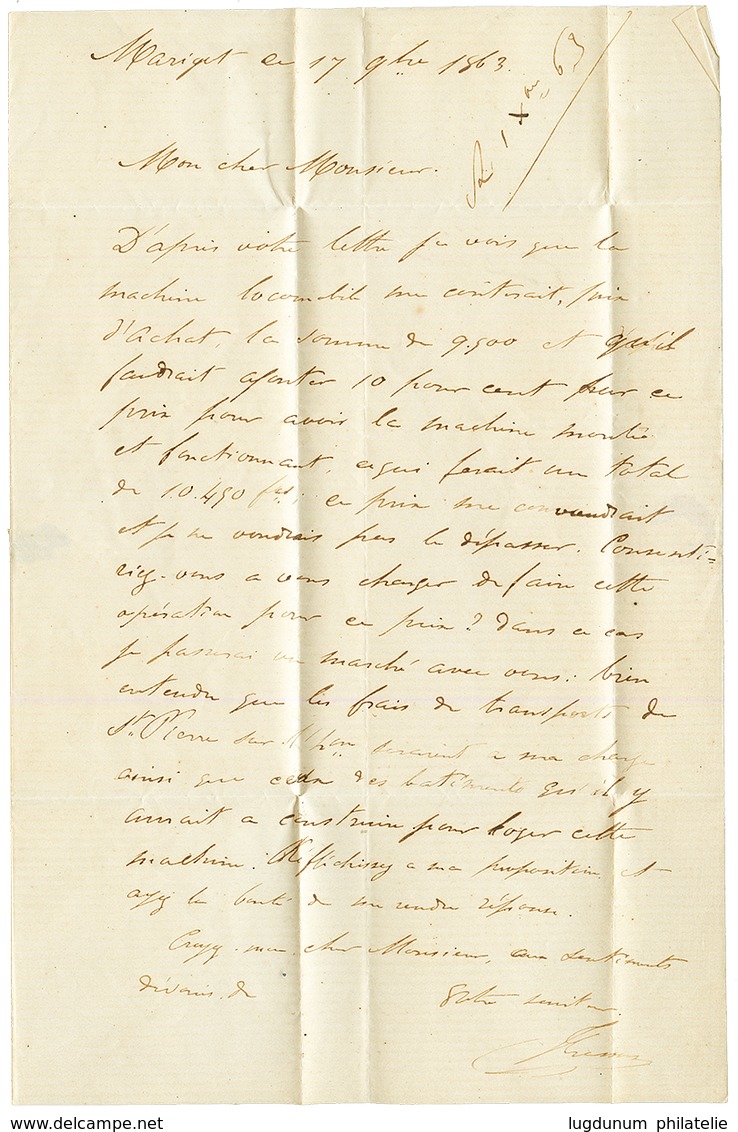 Marigot ce 17 9bre 1863.
1 Xbre 63
Mon cher Monsieur.
D'après votre lettre je vois que la
machine locomobile me coûterait, prix
d'achat, la somme de 9.500 et qu'il
faudrait ajouter 10 pour cent sur ce
prix pour avoir la machine montée
et fonctionnant, ce qui ferait un total
de 10.450 frs; ce prix me conviendrait
et je ne voudrais pas le dépasser. Consenti=
riez-vous a vous charger de faire cette
opération pour ce prix? dans ce cas
je passerai un marché avec vous: bien
entendu que les frais de transports de
St Pierre sur seraient a ma charge
ainsi que ceux des batiments qu'il y
aurait a construire pour loger cette
machine. Réfléchissez a ma proposition et
ayez la bonté de me rendre réponse.
Croyez-moi cher Monsieur, aux sentiments
dévoués de
Votre serviteur.
lugdunum philatelie